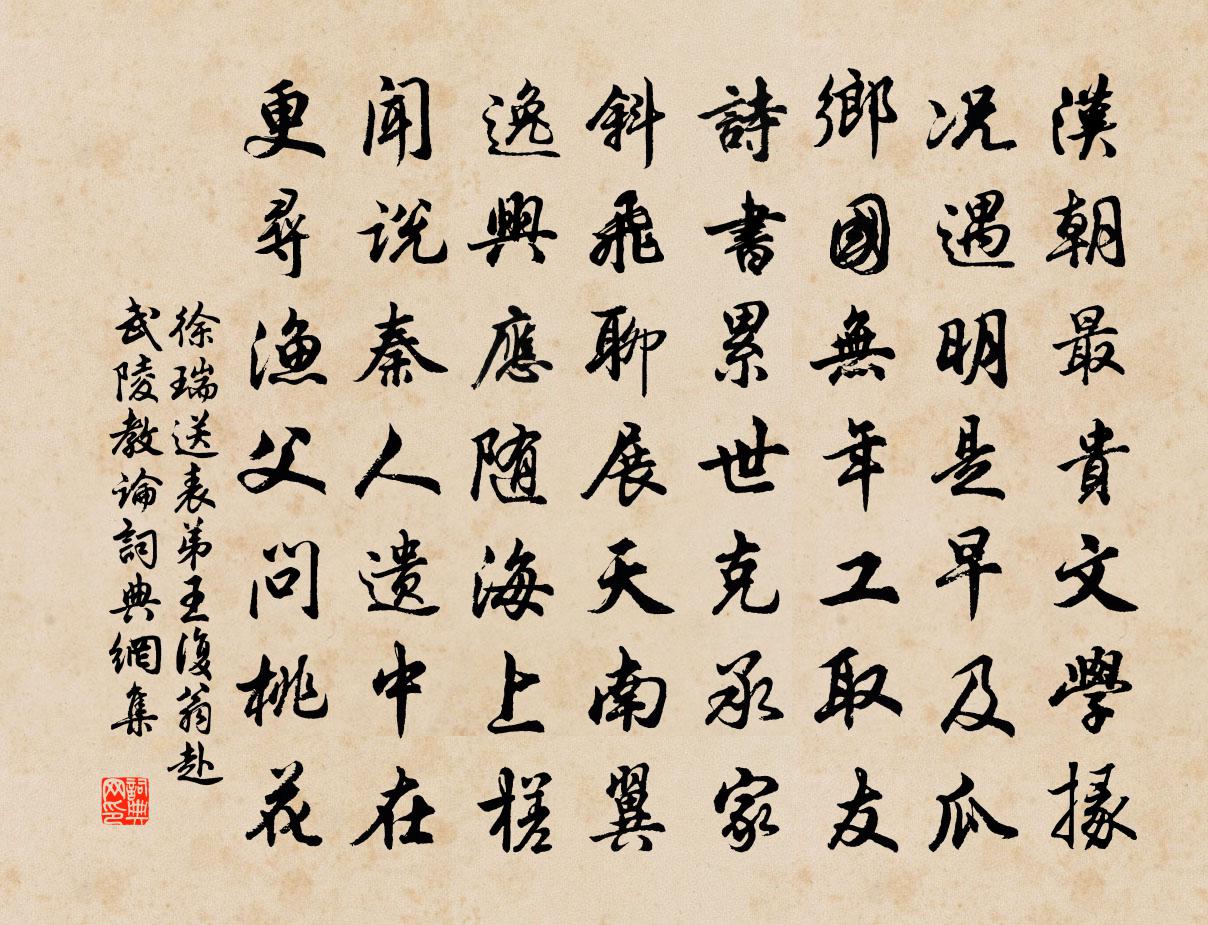 漢朝最貴文學掾
况遇明是早及瓜
鄉國無年工取友
詩書累世克承家
斜飛聊展天南翼
逸興應随海上槎
聞説秦人遺中在
更尋漁父問桃花
徐瑞送表弟王復翁赴
武陵教論詞典網集
詞典
网印